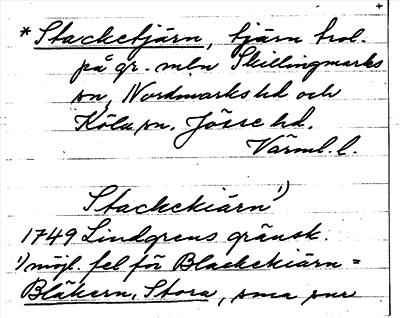 * Stacketjärn, tjärn trol.
på gr. mln Skillingmarks
sn, Nordmarks hd och
Köla sn. Jösse hd.
Värml. l.
Stackekiärn¹)
1749 Lindgrens gränsk.
¹) möjl. fel för Blackekiärn =
Bläkern, Stora, sma sur